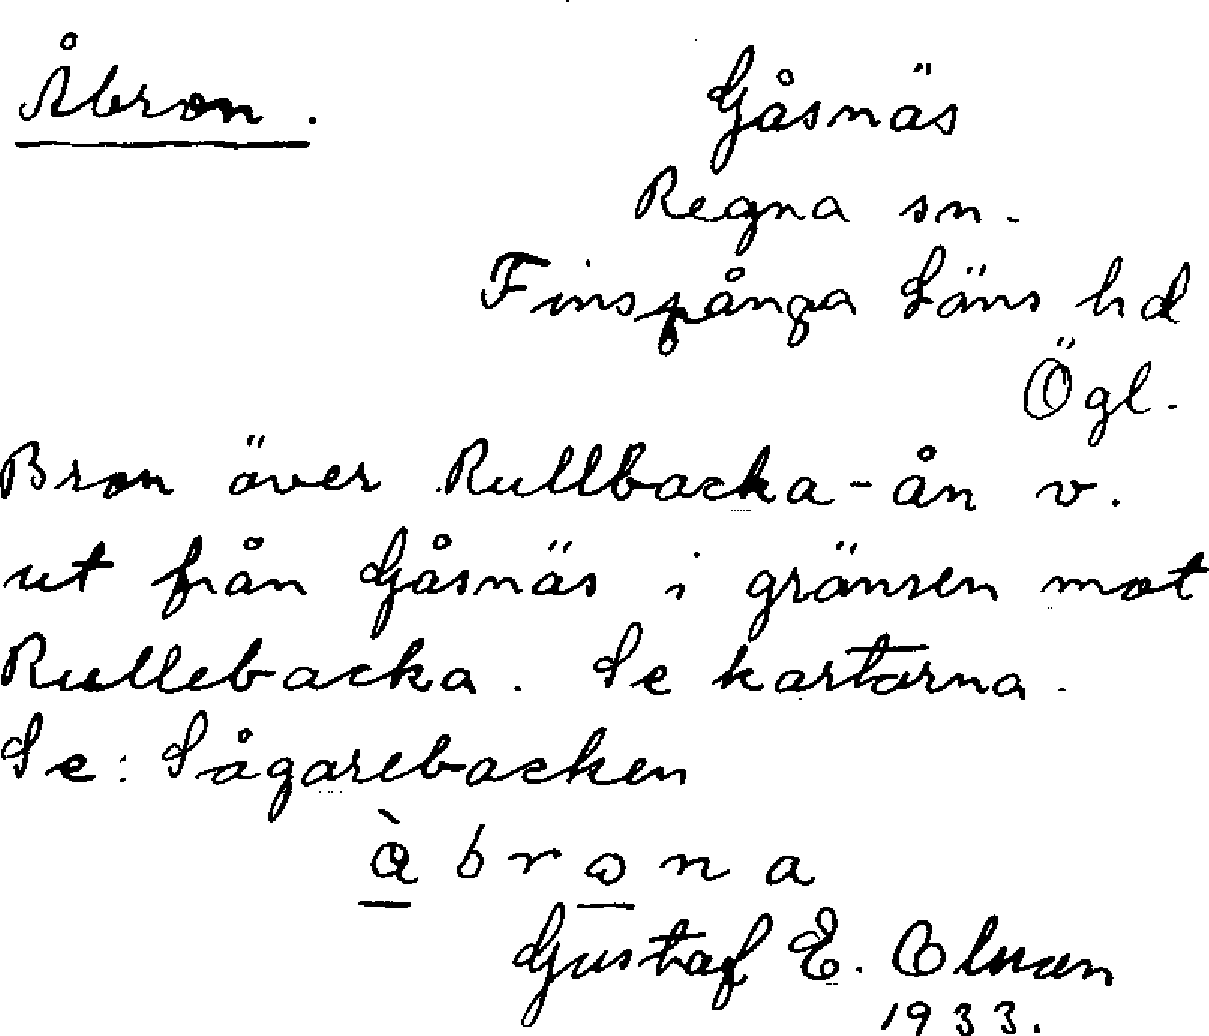 Åbron.
Gåsnäs
Regna sn.
Finspånga Läns hd
Ögl.
Bron över Rullbacka-ån v.
ut från Gåsnäs i gränsen mot
Rullebacka. Se kartorna.
Se: Sågarebacken
à b r o n a
Gustaf E.
1933.